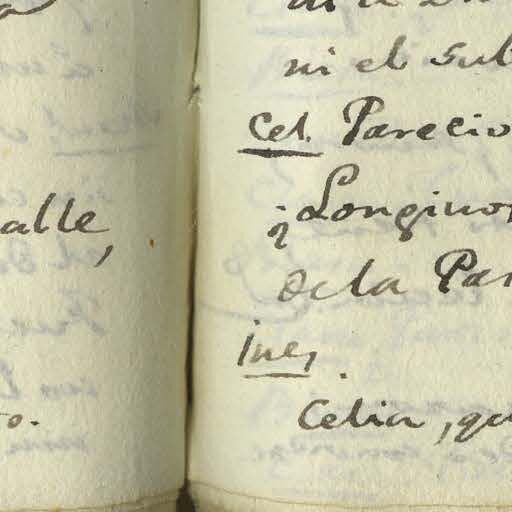 alle,
o.
ni el sul
Cel. Parecio
Longinos
de la Pas
Ines.
Celia, qu